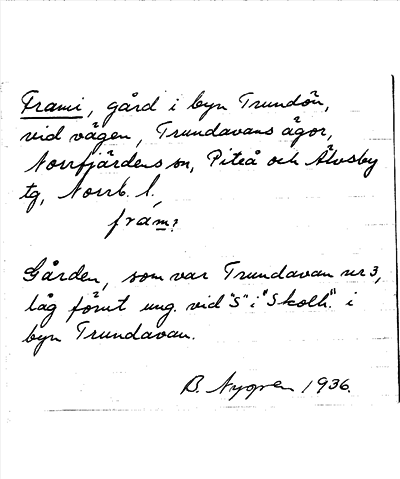 Frami, gård i byn Trundön,
vid vägen, Trundavans ägor,
Norrfjärdens sn, Piteå och Älvsby
tg, Norrb. l.
fram:
Gården, som var Trundavan nr 3,
låg förut ung. vid "S" i "Skolh." i
byn Trundavan.
B. Nygren 1936.